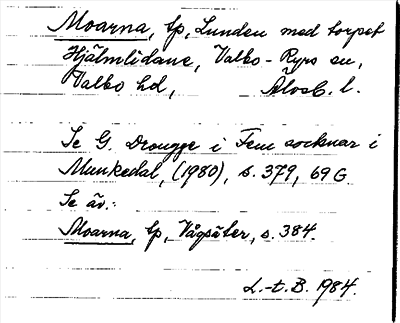 Moarna, tp, Lunden med torpet
Hjälmlidane, Valbo-Ryrs sn,
Valbo hd, Älvsb. l.
Se G. Drougge i Fem socknar i
Munkedal, (1980), s. 379, 69 G
Se äv.:
Moarna, tp, Vågsäter, s. 384.
L.-t. B. 1984.